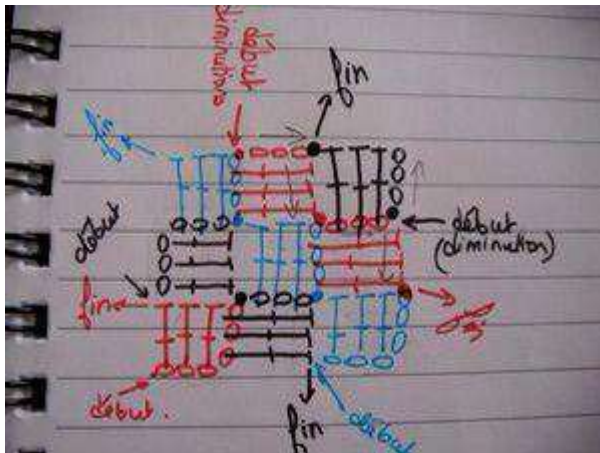 début
diminutions
fin
fin
début
début
(diminution)
fin
début.
fin
début